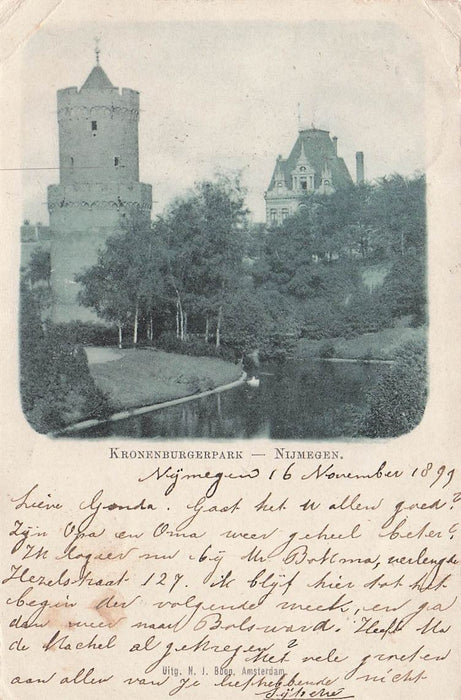 KRONENBURGERPARK — NIJMEGEN.
Nijmegen 16 November 1899
Lieve Gonda. Gaat het U allen goed?
Zijn Opa en Oma weer geheel beter?
Ik logeer nu bij Mr Boltsma, verlengde
Hezelstraat 127. ik blijf hier tot het
begin der volgende week, en ga
dan weer naar Bolsward. Heeft Ma
de Machel al gekregen?
Met vele groeten
aan allen van je liefhebbende nicht
Uitg. N. J. Boon, Amsterdam.